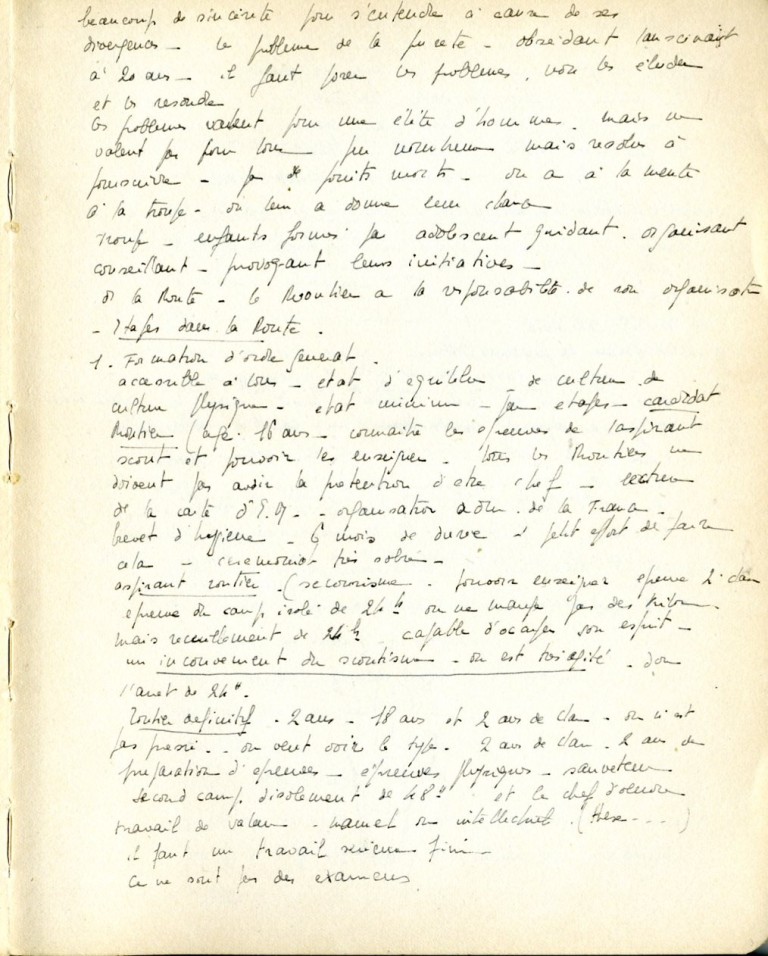 beaucoup de sincérité pour s'entendre à cause de ses
divergences - le problème de la pureté - obsédant
à 20 ans - il faut poser les problèmes, non les éluder
et les resoudre
les problèmes valent pour une élite d'hommes mais ne
valent pas pour tous - peu nombreux mais resolus à
poursuivre - pas de points morts - on a à la meute
à la troupe - on leur a donné leur
enfants formés par adolescent guidant, organisant
conseillant - provoquant leurs initiatives -
de la Route - le Routier a la responsabilité de son
- Etapes dans la Route.
1. Formation d'ordre general.
accessible à tous - etat d'equilibre - de culture de
culture physique - etat minimum - par etapes - candidat
Routier (age 16 ans - connaitre les epreuves de l'aspirant
scout et pouvoir les enseigner - tous les Routiers ne
doivent pas avoir la pretention d'etre chef - lecture
de la carte d'E.M. - organisation adm. de la France -
brevet d'hygiene - 6 mois de durée - petit effort de faire
cela - ceremonial très sobre -
aspirant routier (secourisme - pouvoir enseigner epreuve 2e classe
epreuve du camp isolé de 24h on ne mange pas des
mais recueillement de 24h capable d'occuper son esprit -
un inconvenient du scoutisme - on est très agité - d'où
l'arret de 24h.
Routier definitif - 2 ans - 18 ans et 2 ans de clan - on n'est
pas pressé - on veut voir le type - 2 ans de clan - 2 ans de
preparation d'epreuves - épreuves physiques - sauveteur
second camp d'isolement de 48h et le chef d'oeuvre
travail de valeur - manuel ou intellectuel (these ---)
il faut un travail serieux fini -
ce ne sont pas des examens